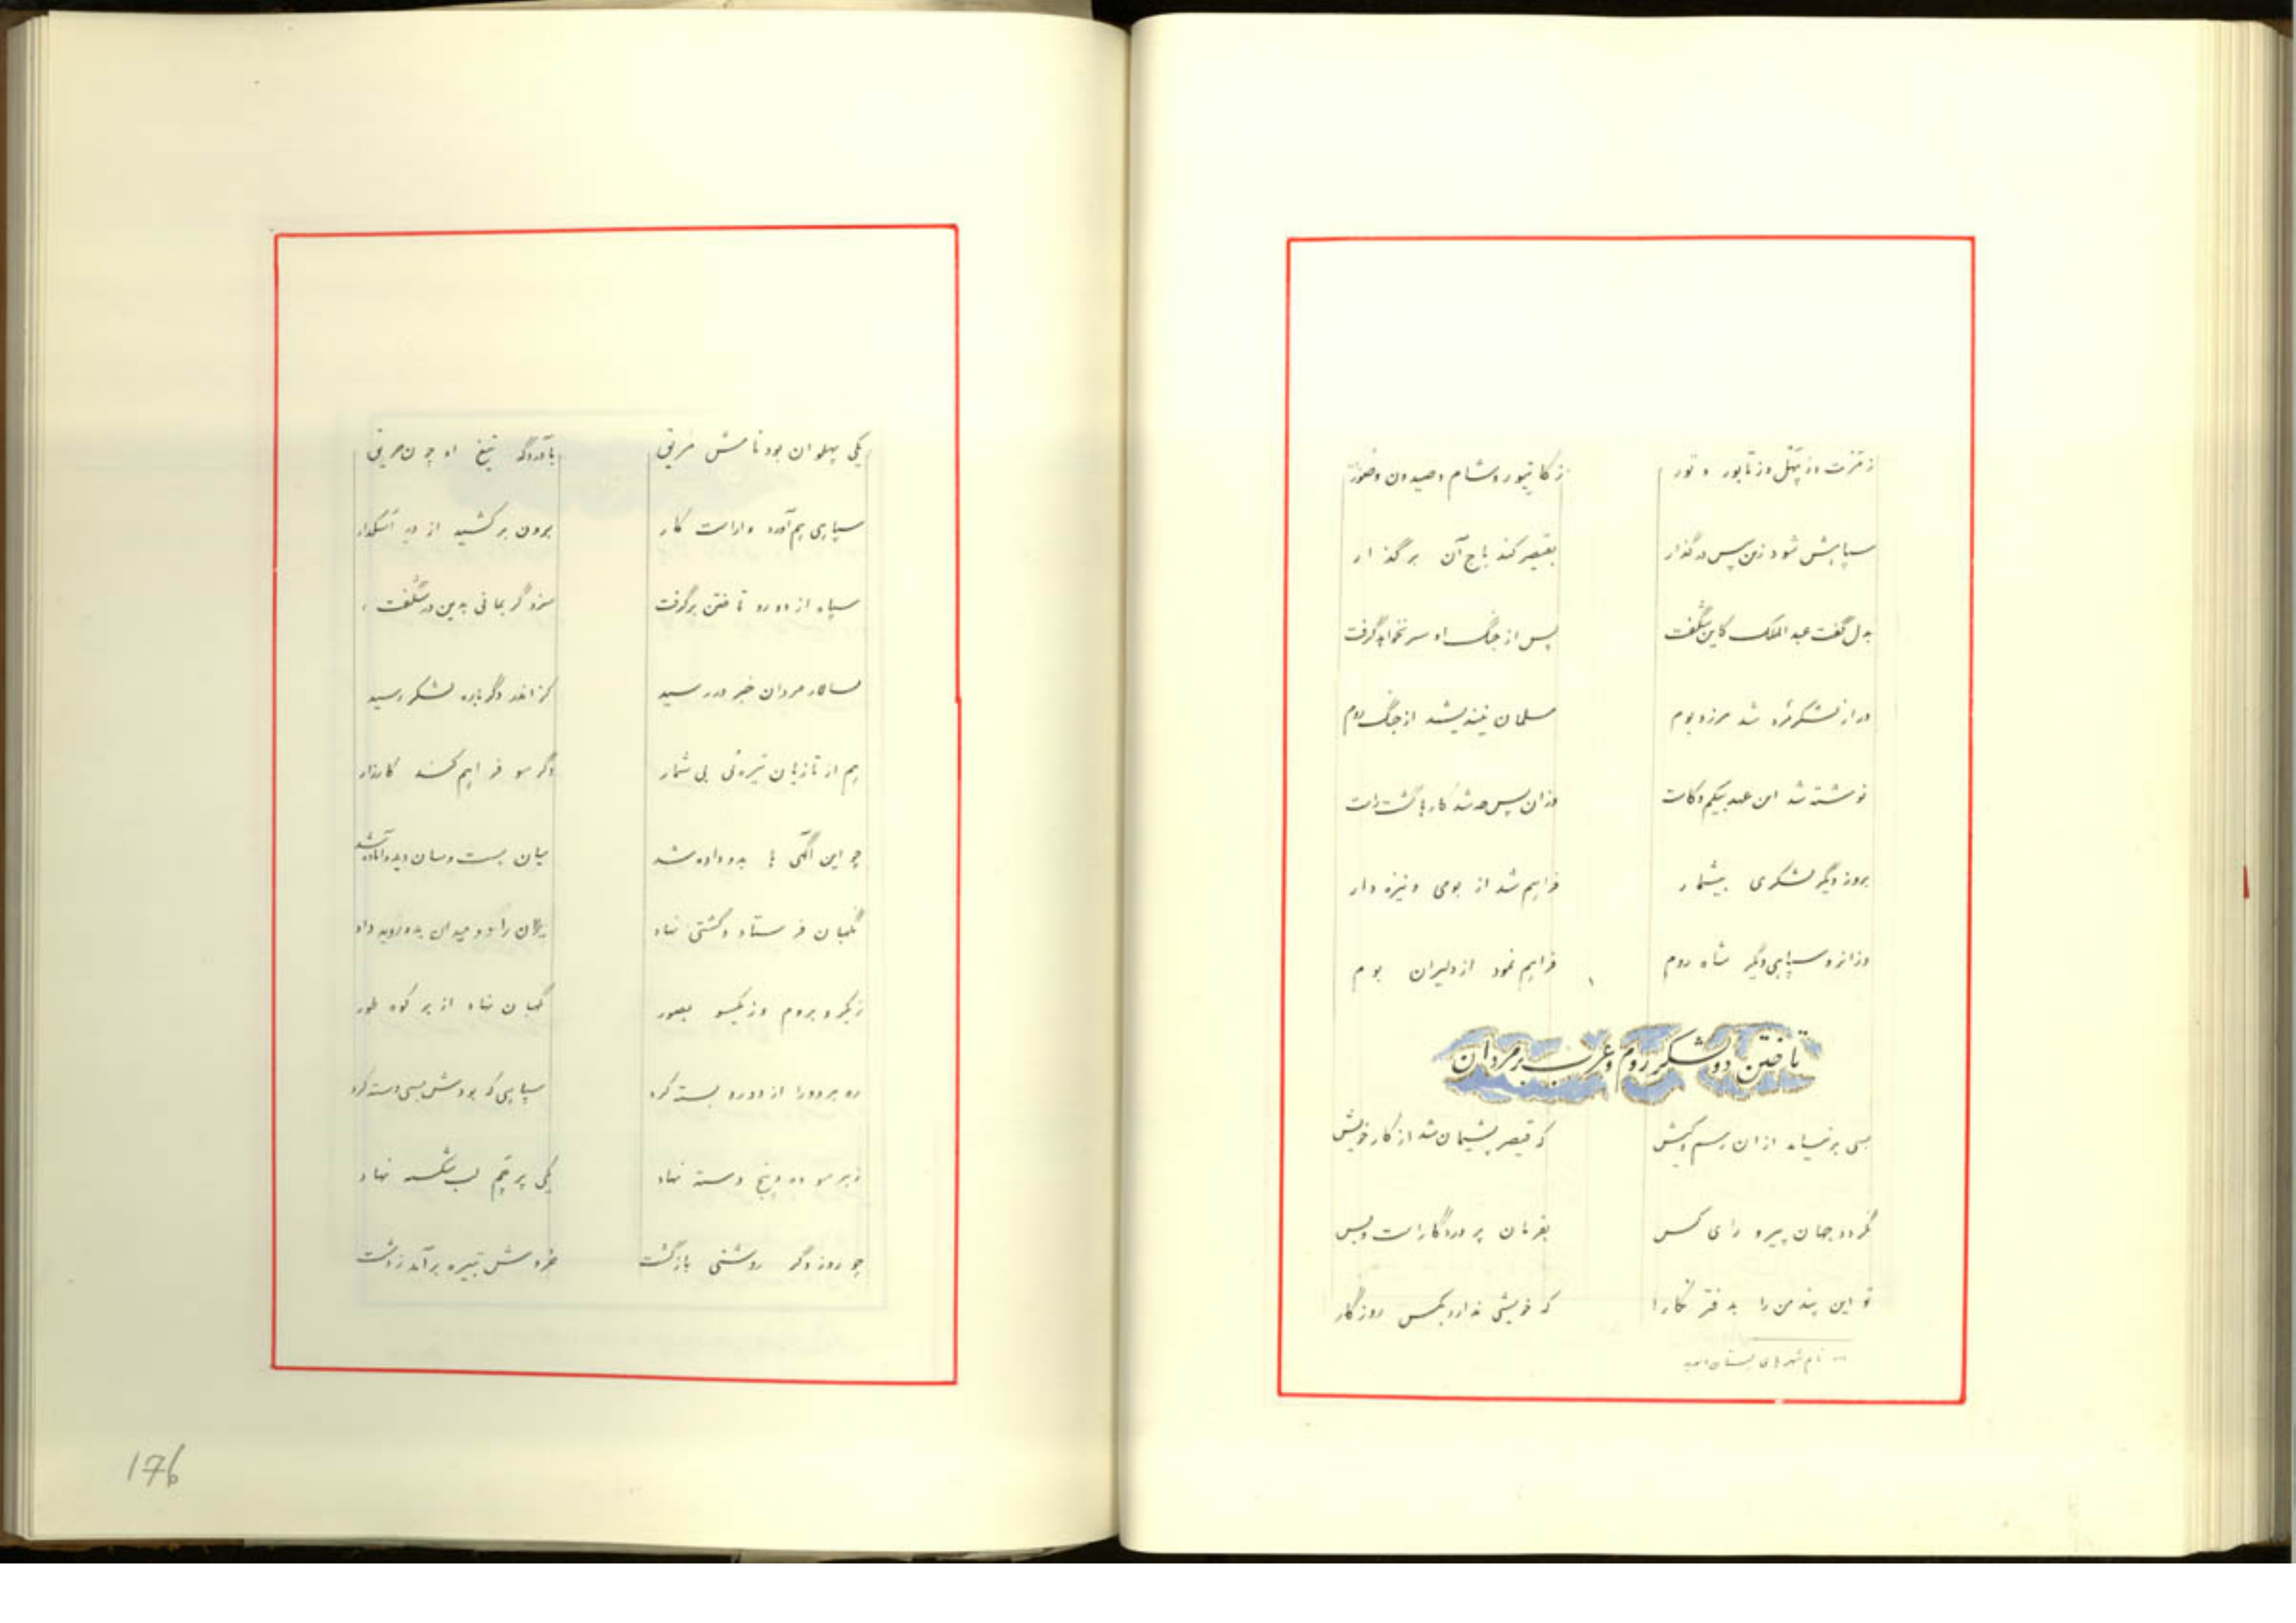 وز تابور و تور
ز کا تیور و شام و صیدون و صور
سپاهش شود زین سپس در گذار
بقیصر کند باج آن برگذار
بدل گفت عبدالملک کاین شگفت
پس از جنگ او سر نخواهد گرفت
شد مرز و بوم
مسلمان نیندیشد از جنگ روم
نوشته شد این عهد بیکم و کاست
وزان پس شد کارها گشت راست
بروز دیگر لشکری بیشمار
فراهم شد از بومی و نیزه دار
وزانرو سپاهی دگر شاه روم
فراهم نمود از دلیران بوم
تاختن دو لشکر روم و عرب بر مردان
بسی بر نیامد از ان رسم و کیش
که قیصر پشیمان شد از کار خویش
نگردد جهان پیرو رای کس
بفرمان پروردگارست و بس
تو این پند من را بدفتر نگار
که خویشی ندارد بکس روزگار
نام شهرهای لبنان
یکی پهلوان بود نامش
تیغ او چون حریق
سپاهی بهم آورد و اراست کار
برون بر کشید از در
سپاه از دو رو تاختن برگرفت
سزد گر بمانی بدین در شگفت
بسالار مردان خبر در رسید
کز اندر دگر باره لشکر رسید
هم از تازیان نیروئی بی شمار
دگر سو فراهم کند کارزار
چو این آگهی ها بدو داده شد
میان بست و سان دید و آماده شد
نگهبان فرستاد و کشتی نهاد
یلان را دو میدان بدو زوید داد
ز یکرو بروم وز یکسو بصور
نگهبان نهاد از بر کوه طور
ره هر دو را از دو رو بسته کرد
سپاهی که بودش بسی دسته کرد
ز هر سو ده و پنج دسته نهاد
یکی پرچم نهاد
چو روز دگر روشنی بازگشت
خروش تبیره برآمد ز دشت
176